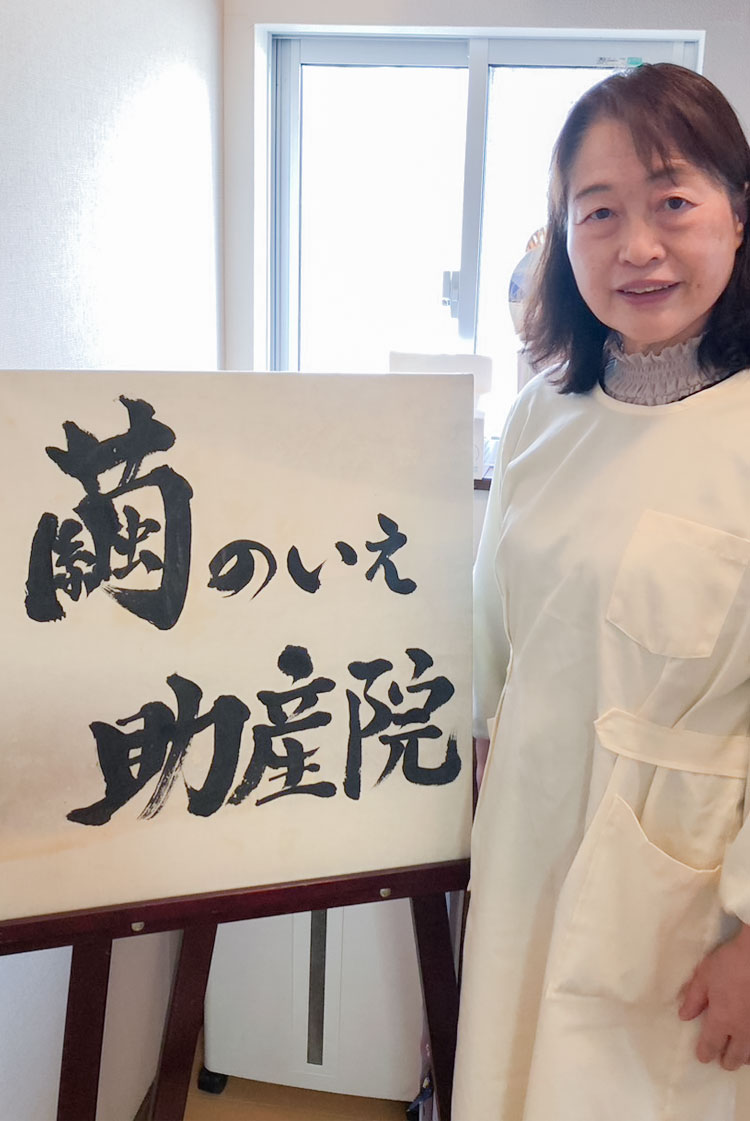 繭のいえ
助産院